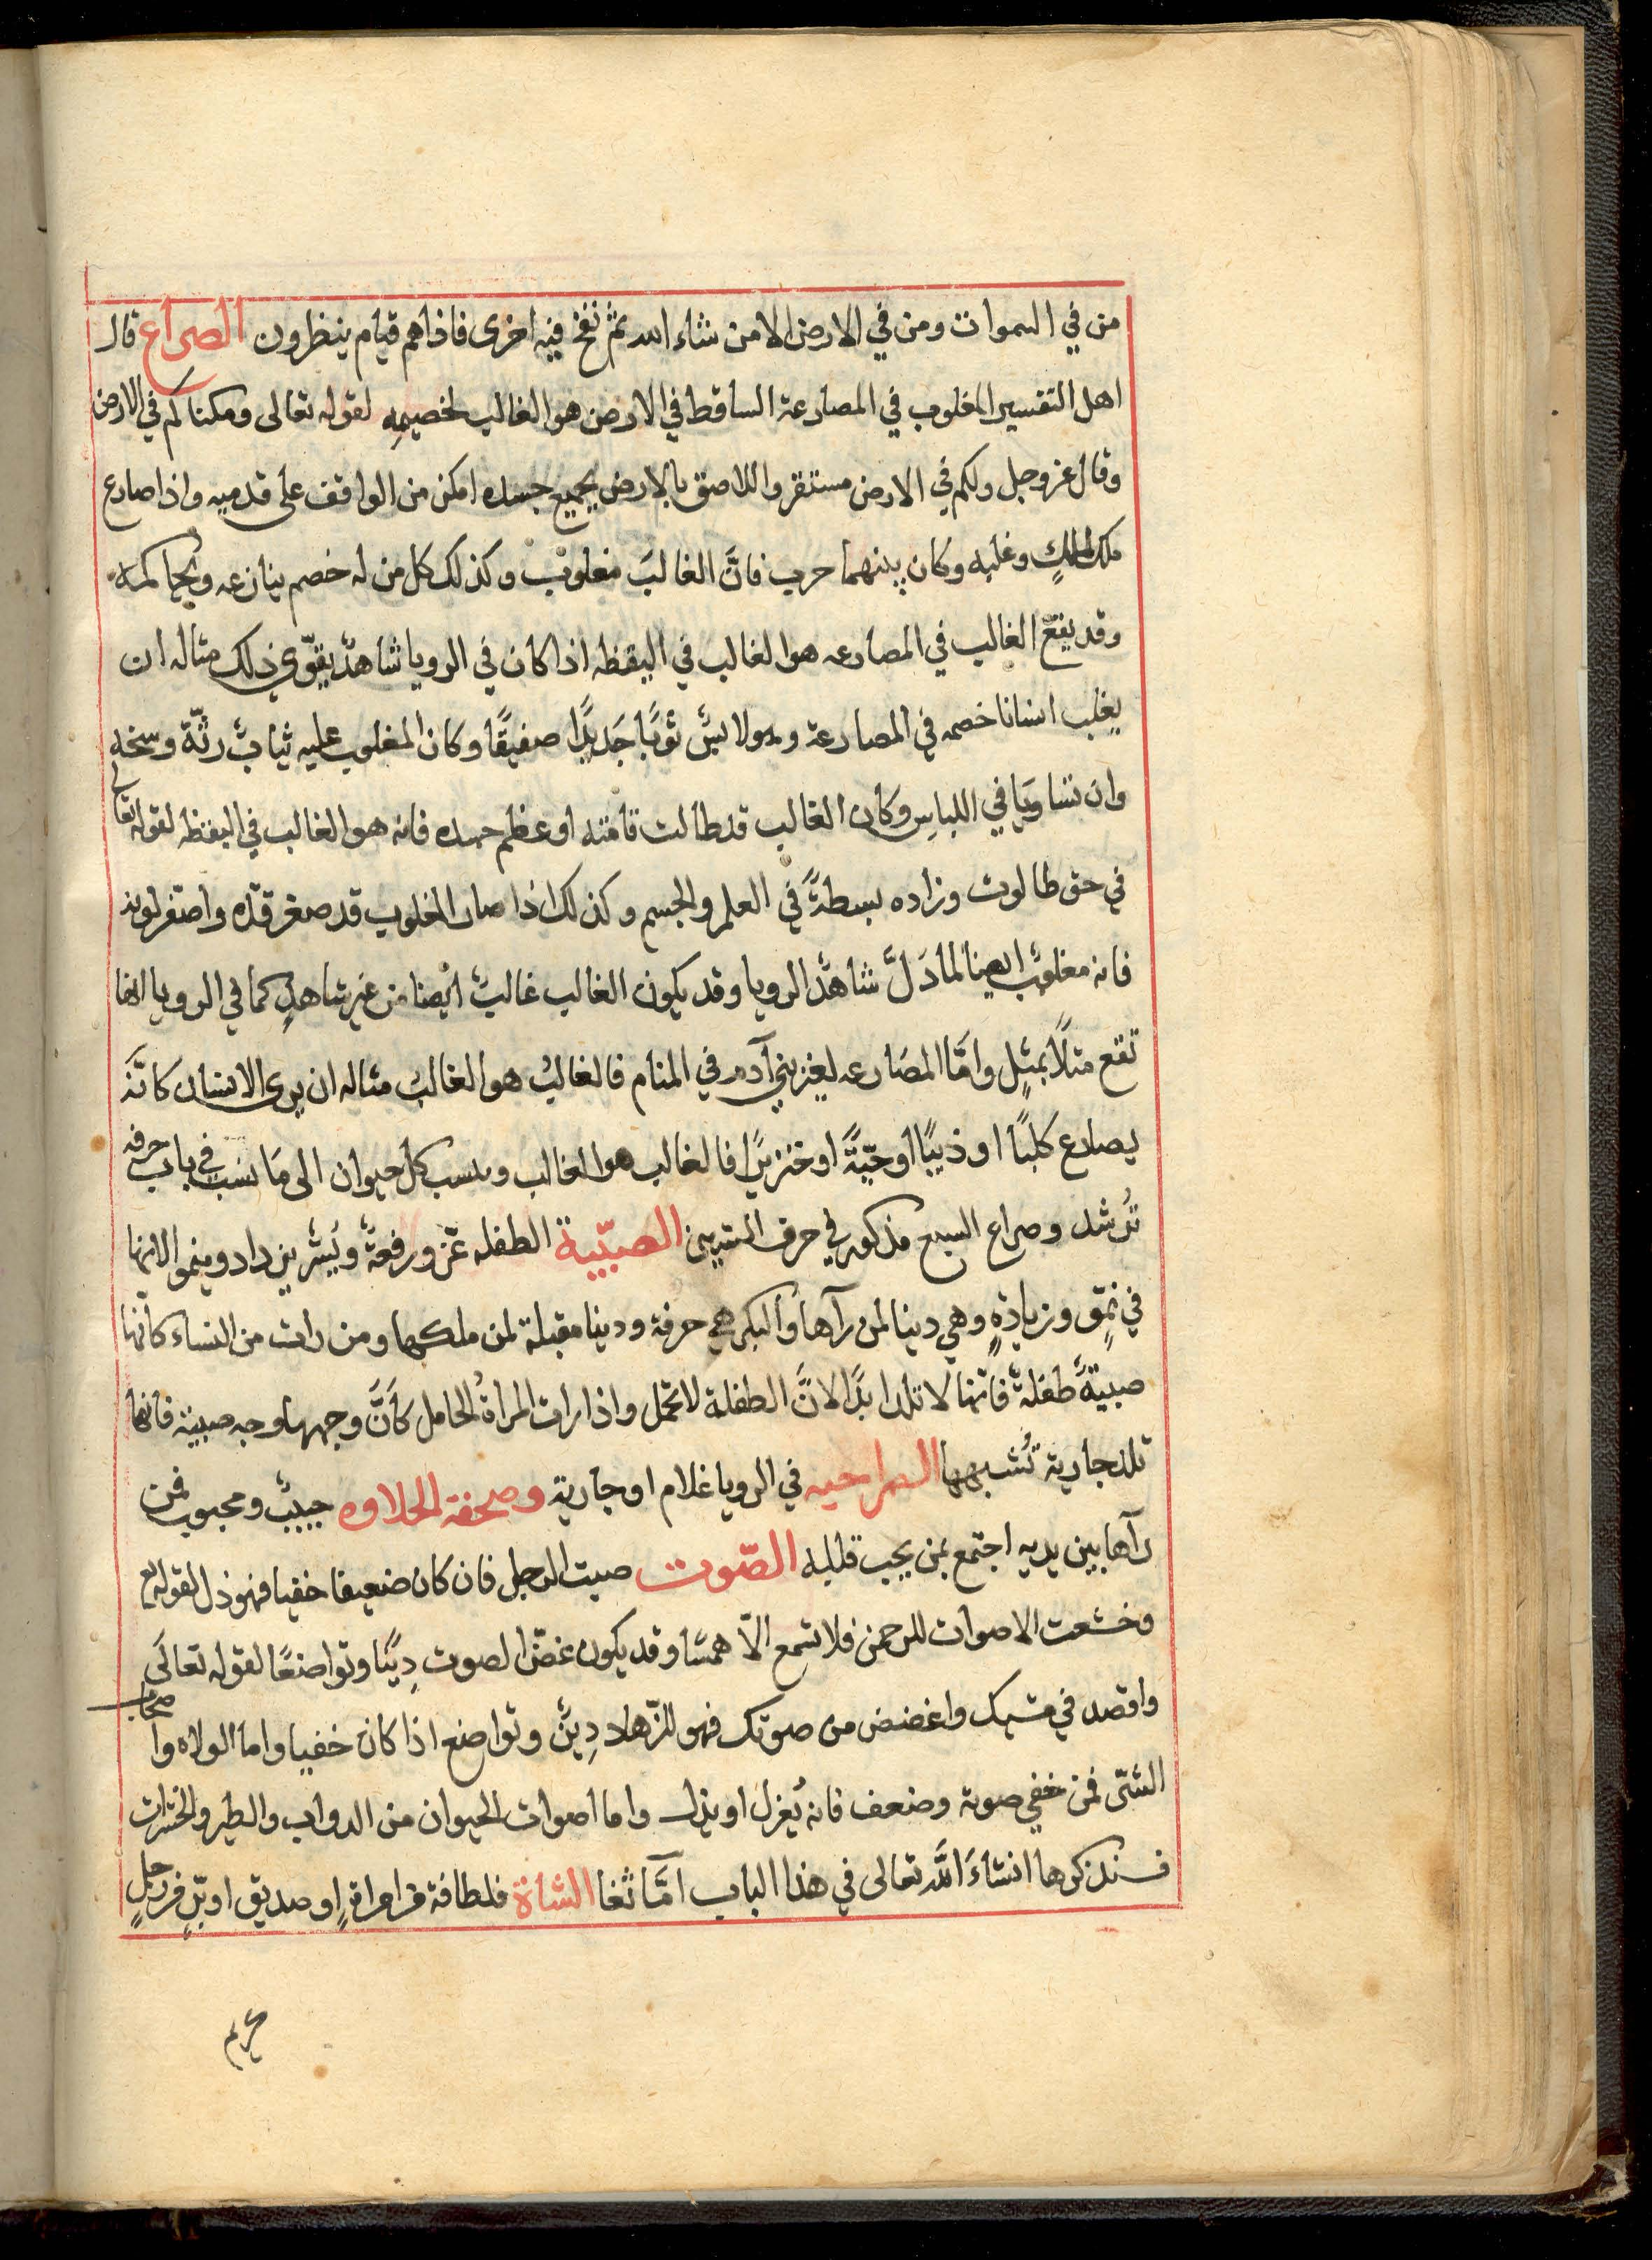 من في السموات ومن في الارض الا من شاء الله ثم نفخ فيه اخرى فاذاهم قيام ينظرون الصراع قال
اهل التفسير المغلوب في المصارعة الساقط في الارض هو الغالب لخصيمه لقوله تعالى ومكناكم في الارض
وقال عز وجل ولكم في الارض مستقر واللاصق بالارض بجميع جسده امكن من الواقف على قدميه واذا صارع
ملك لملكٍ وغلبه وكان بينهما حرب فانَّ الغالبَ مغلوبٌ وكذلك كل من له خصم ينازعه ويحاكمه
وقد يقع الغالب في المصارعه هو الغالب في اليقظه اذا كان في الرويا شاهدٌ يقوّي ذلك مثاله ان
يغلب انسانا خصمه في المصارعة وهو لابسٌ ثوبًا جَديدًا صفيقًا وكان المغلوب عليه ثيابٌ رثّة وسخه
وان تساويَا في اللباسِ وكان الغالب قد طالت قامته او عظم جسده فانه هو الغالب في اليقظه لقوله تعالى
في حق طالوت وزاده بسطةً في العلم والجسم وكذلك اذا صار المغلوب قد صغر قدّه واصفر لونه
فانه مغلوبٌ ايضا لما دَلَّ شاهدُ الرويا وقد يكون الغالب غالبٌ ايضا من غير شاهدٍ كما في الرويا انها
تقع مثلًا بمثلٍ وامَّا المصَارعه لغير بني آدم في المنام فالغالبُ هو الغالبُ مثاله ان يرى الانسان كانَّه
يصارع كلبًا او ذيبًا او حيّةً او خنزيرًا فالغالب هو الغالب وينسب كل حيوان الى مَا نسب في باب حرفه
تُرشد وصراع السبع مذكور في حرف السين الصبّية الطفله عزّ ورفعةٌ ويُسْر يزداد وينموا لانها
في نموٍّ وزيادةٍ وهي دينا لمن رآها والبكر هي حرفة ودينا مقبلة لمن ملكها ومن رات من النساء كانها
صبيةً طفلةٌ فانها لا تلد ابدًا لانَّ الطفلة لا تحمل واذا رات المراةُ الحامل كاَنَّ وجهها وجه صبية فانها
تلد جارية تُشبهها الصراحيه في الرويا غلام او جارية وصحفة الحلاوه حبيبٌ ومحبوب فمن
رآها بين يديه اجتمع بمن يحب قلبه الصّوت صيت الرجل فان كان ضعيفا خفيا فهو ذل لقوله تع
وخشعت الاصوات للرحمن فلا تسمع الاّ همسًا وقد يكون غضّ الصوت دِينًا وتواضعًا لقوله تعالَى
واقصد في مشيك واغضض من صوتك فهو للزّهاد دِينٌ وتواضع اذا كان خفيا واما الولاه وا صحاب
الشىّ فمن خفي صوته وضعف فانه يُعزل او يذل واما اصوات الحيوان من الدواب والطير والحشرات
فسنذكرها انشاءَ اللَّه تعالى في هذا الباب امَّا ثغا الشاة فلطافة من امراةٍ او صديق او برّ من رجلٍ
كريم